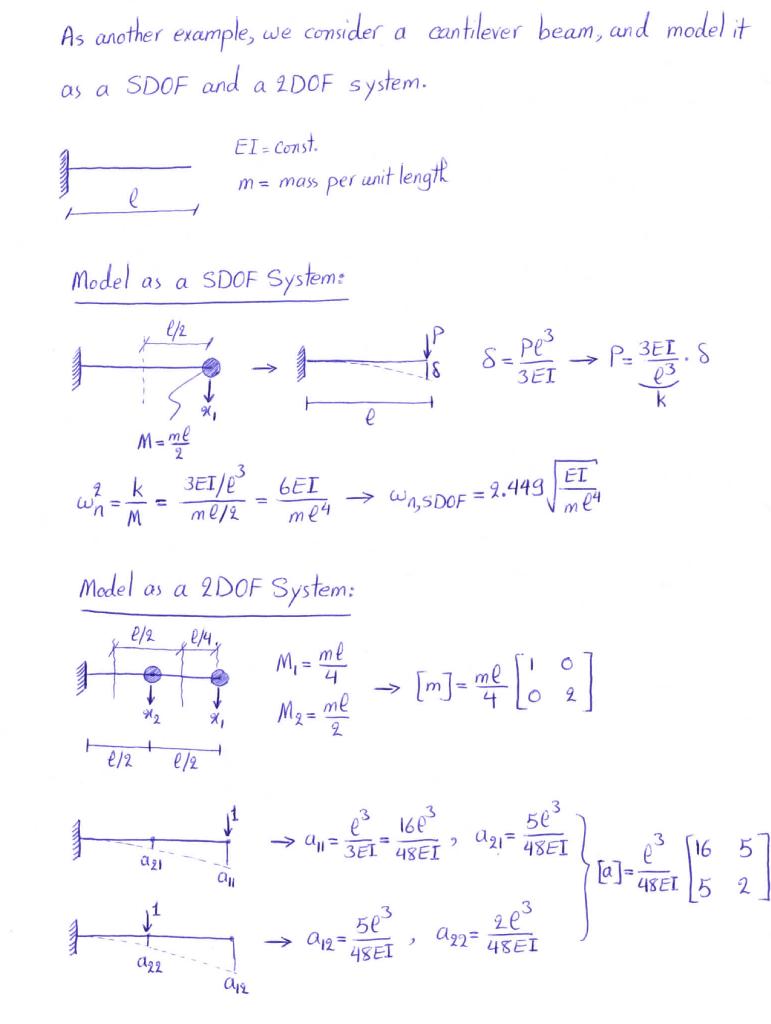 As another example, we consider a cantilever beam, and model it
as a SDOF and a 2DOF system.
EI = const.
m = mass per unit length
ℓ
Model as a SDOF System:
ℓ/2
x₁
M = mℓ/2
→
P
δ
ℓ
δ = Pℓ³/3EI → P = 3EI/ℓ³ · δ
k
ωₙ² = k/M = (3EI/ℓ³)/(mℓ/2) = 6EI/mℓ⁴ → ωₙ,SDOF = 2.449 √(EI/mℓ⁴)
Model as a 2DOF System:
ℓ/2 ℓ/4
x₂ x₁
ℓ/2 ℓ/2
M₁ = mℓ/4
M₂ = mℓ/2
→ [m] = mℓ/4 [1 0
0 2]
1
a₂₁ a₁₁
→ a₁₁ = ℓ³/3EI = 16ℓ³/48EI , a₂₁ = 5ℓ³/48EI
1
a₂₂ a₁₂
→ a₁₂ = 5ℓ³/48EI , a₂₂ = 2ℓ³/48EI
[a] = ℓ³/48EI [16 5
5 2]